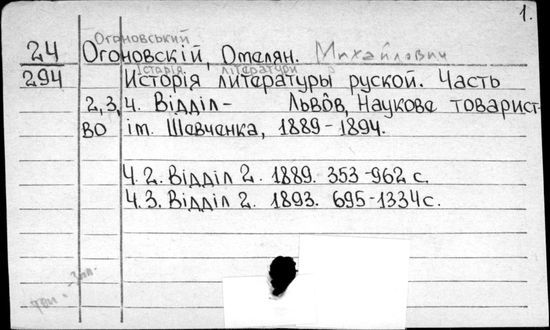 1.
Огоновський
24 Огоновскій, Омелян. Михайлович
Історія літератури
294 Исторія литературы руской. Часть
2,3, ч. Відділ - Львôв, Наукове товарист-
во ім. Шевченка, 1889-1894.
Ч. 2. Відділ 2. 1889. 353-962 с.
Ч. 3. Відділ 2. 1893. 695-1334 с.